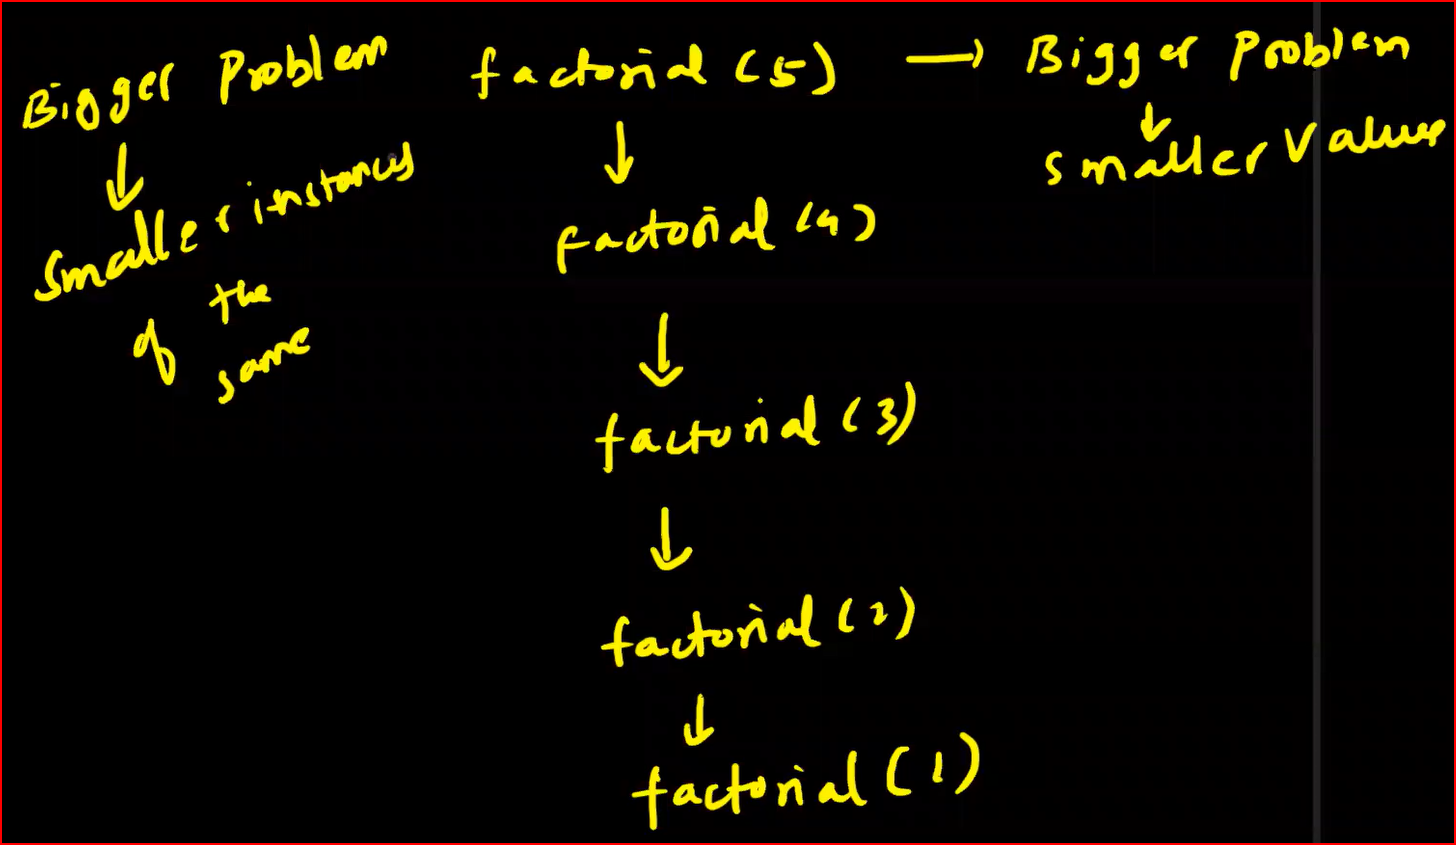 Bigger Problem
Smaller instances
of the
same
factorial (5) → Bigger Problem
Smaller Values
factorial (4)
factorial (3)
factorial (2)
factorial (1)